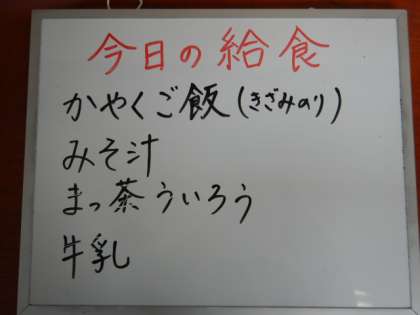 今日の給食
かやくご飯(きざみのり)
みそ汁
まっ茶ういろう
牛乳